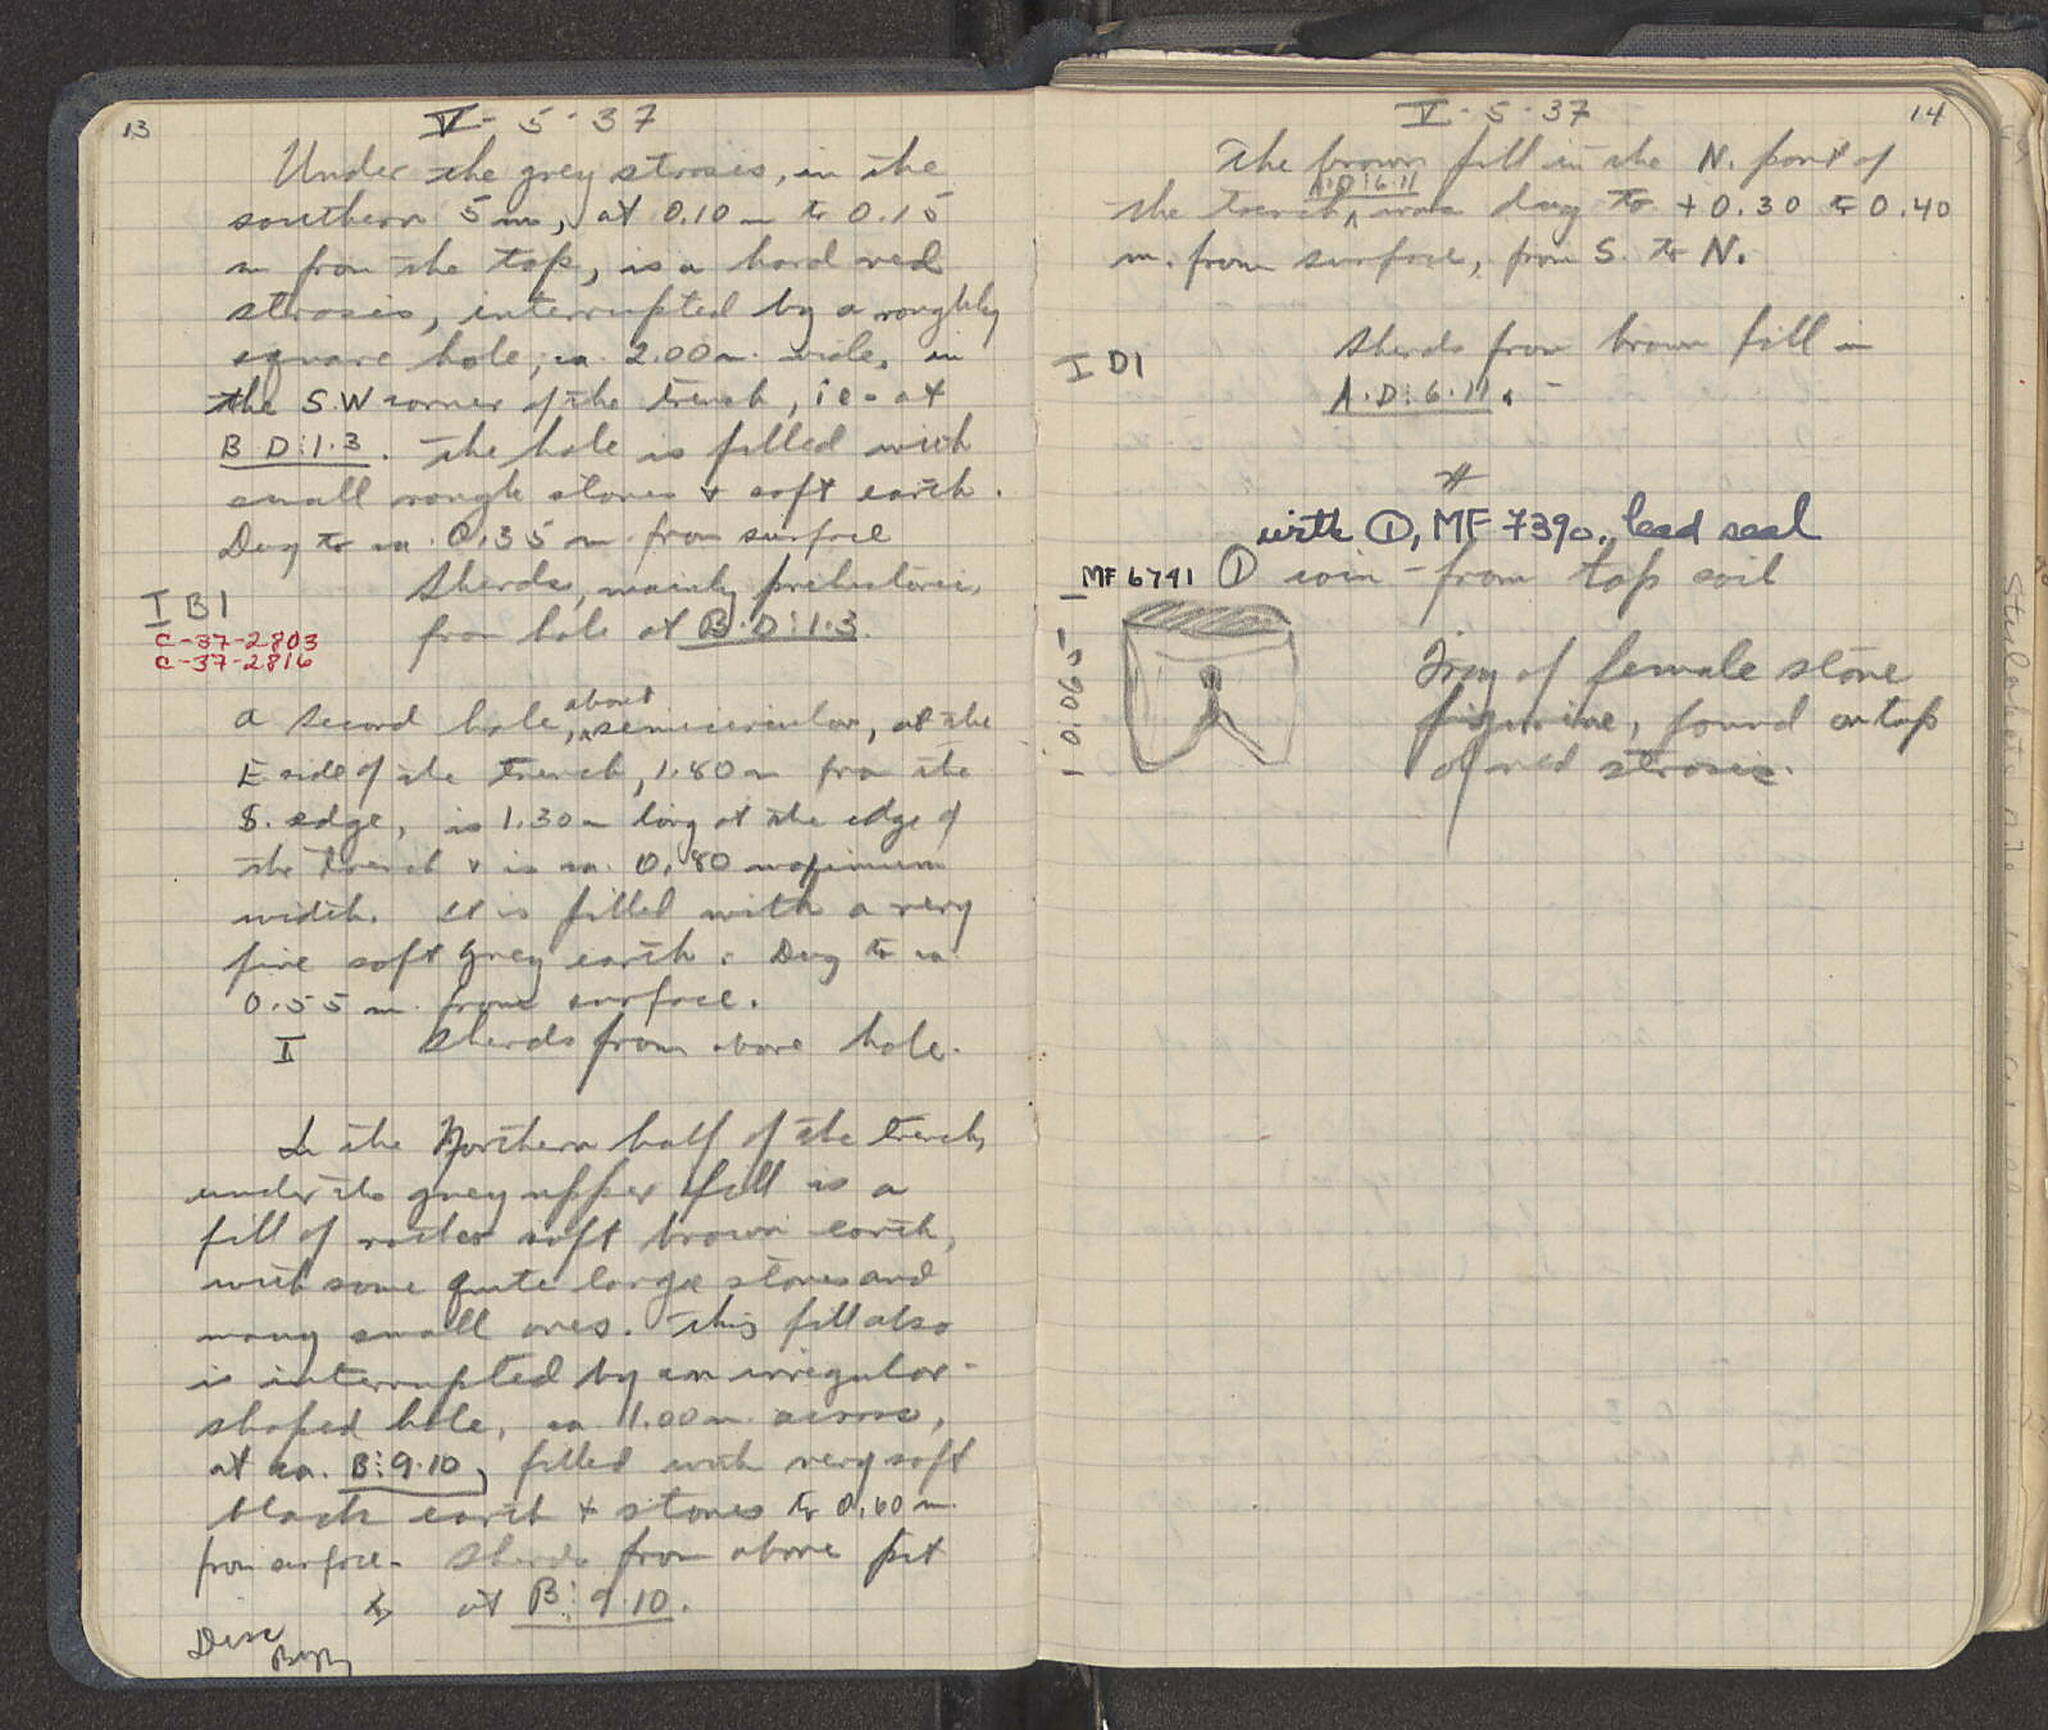 13
V - 5 - 37
Under the grey strosis, in the
southern 5 m, at 0.10 m to 0.15
m from the top, is a hard red
strosis, interrupted by a roughly
square hole, ca. 2.00 m. wide, in
the S.W corner of the trench, i e - at
B D:1.3. The hole is filled with
small rough stones + soft earth.
Dug to ca. 0.35 m from surface
Sherds, mainly prehistoric,
I B1
from hole at B.D:1.3.
C-37-2803
C-37-2816
about
A second hole, ^ semicircular, at the
E side of the trench, 1.80 m from the
S. edge, is 1.30 m long at the edge of
the trench + is ca. 0.80 maximum
width. It is filled with a very
fine soft grey earth. Dug to ca
0.55 m. from surface.
I Sherds from above hole.
In the Northern half of the trench,
under the grey upper fill is a
fill of rather soft brown earth,
with some quite large stones and
many small ones. This fill also
is interrupted by an irregular-
shaped hole, ca. 1.00 m. across,
at ca. B:9.10, filled with very soft
black earth + stones to 0.60 m.
from surface. Sherds from above pit
at B:9.10.
Disc
14
V - 5 - 37
The brown fill in the N. part of
A.D:6.11
the trench ^ was dug to + 0.30 to 0.40
m. from surface, from S. to N.
I D1
Sherds from brown fill in
A.D:6.11. -
#
with ①, MF 7390, lead seal
MF 6741 ① coin - from top soil
0.065
Frag of female stone
figurine, found on top
of red strosis.